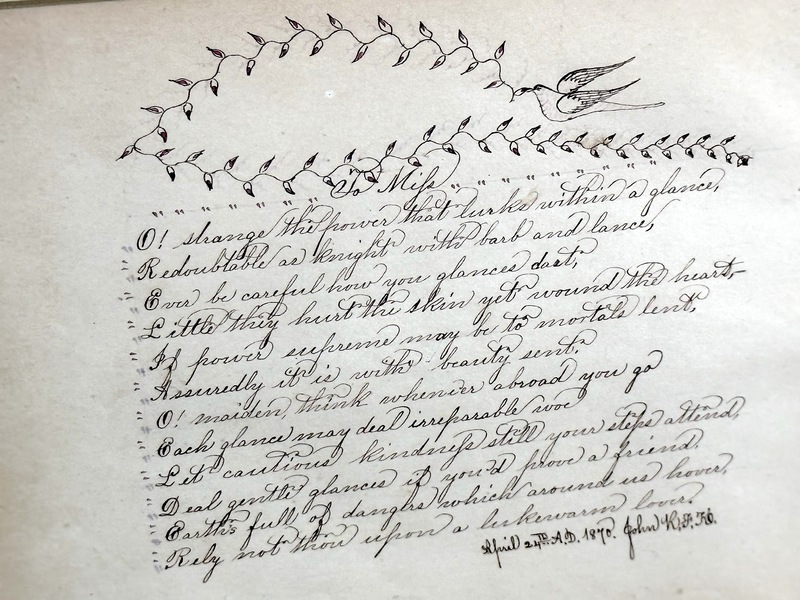 To Miss
O! strange the power that lurks within a glance,
Redoubtable as knight with barb and lance,
Ever be careful how you glances dart,
Little they hurt the skin yet wound the heart,
If power supreme may be to mortals lent,
Assuredly it is with beauty sent.
O! maiden, think whenever abroad you go
Each glance may deal irreparable woe
Let cautious kindness still your steps attend,
Deal gentle glances if you'd prove a friend
Earth's full of dangers which around us hover,
Rely not thou upon a lukewarm lover.
April 24th A.D. 1870. John